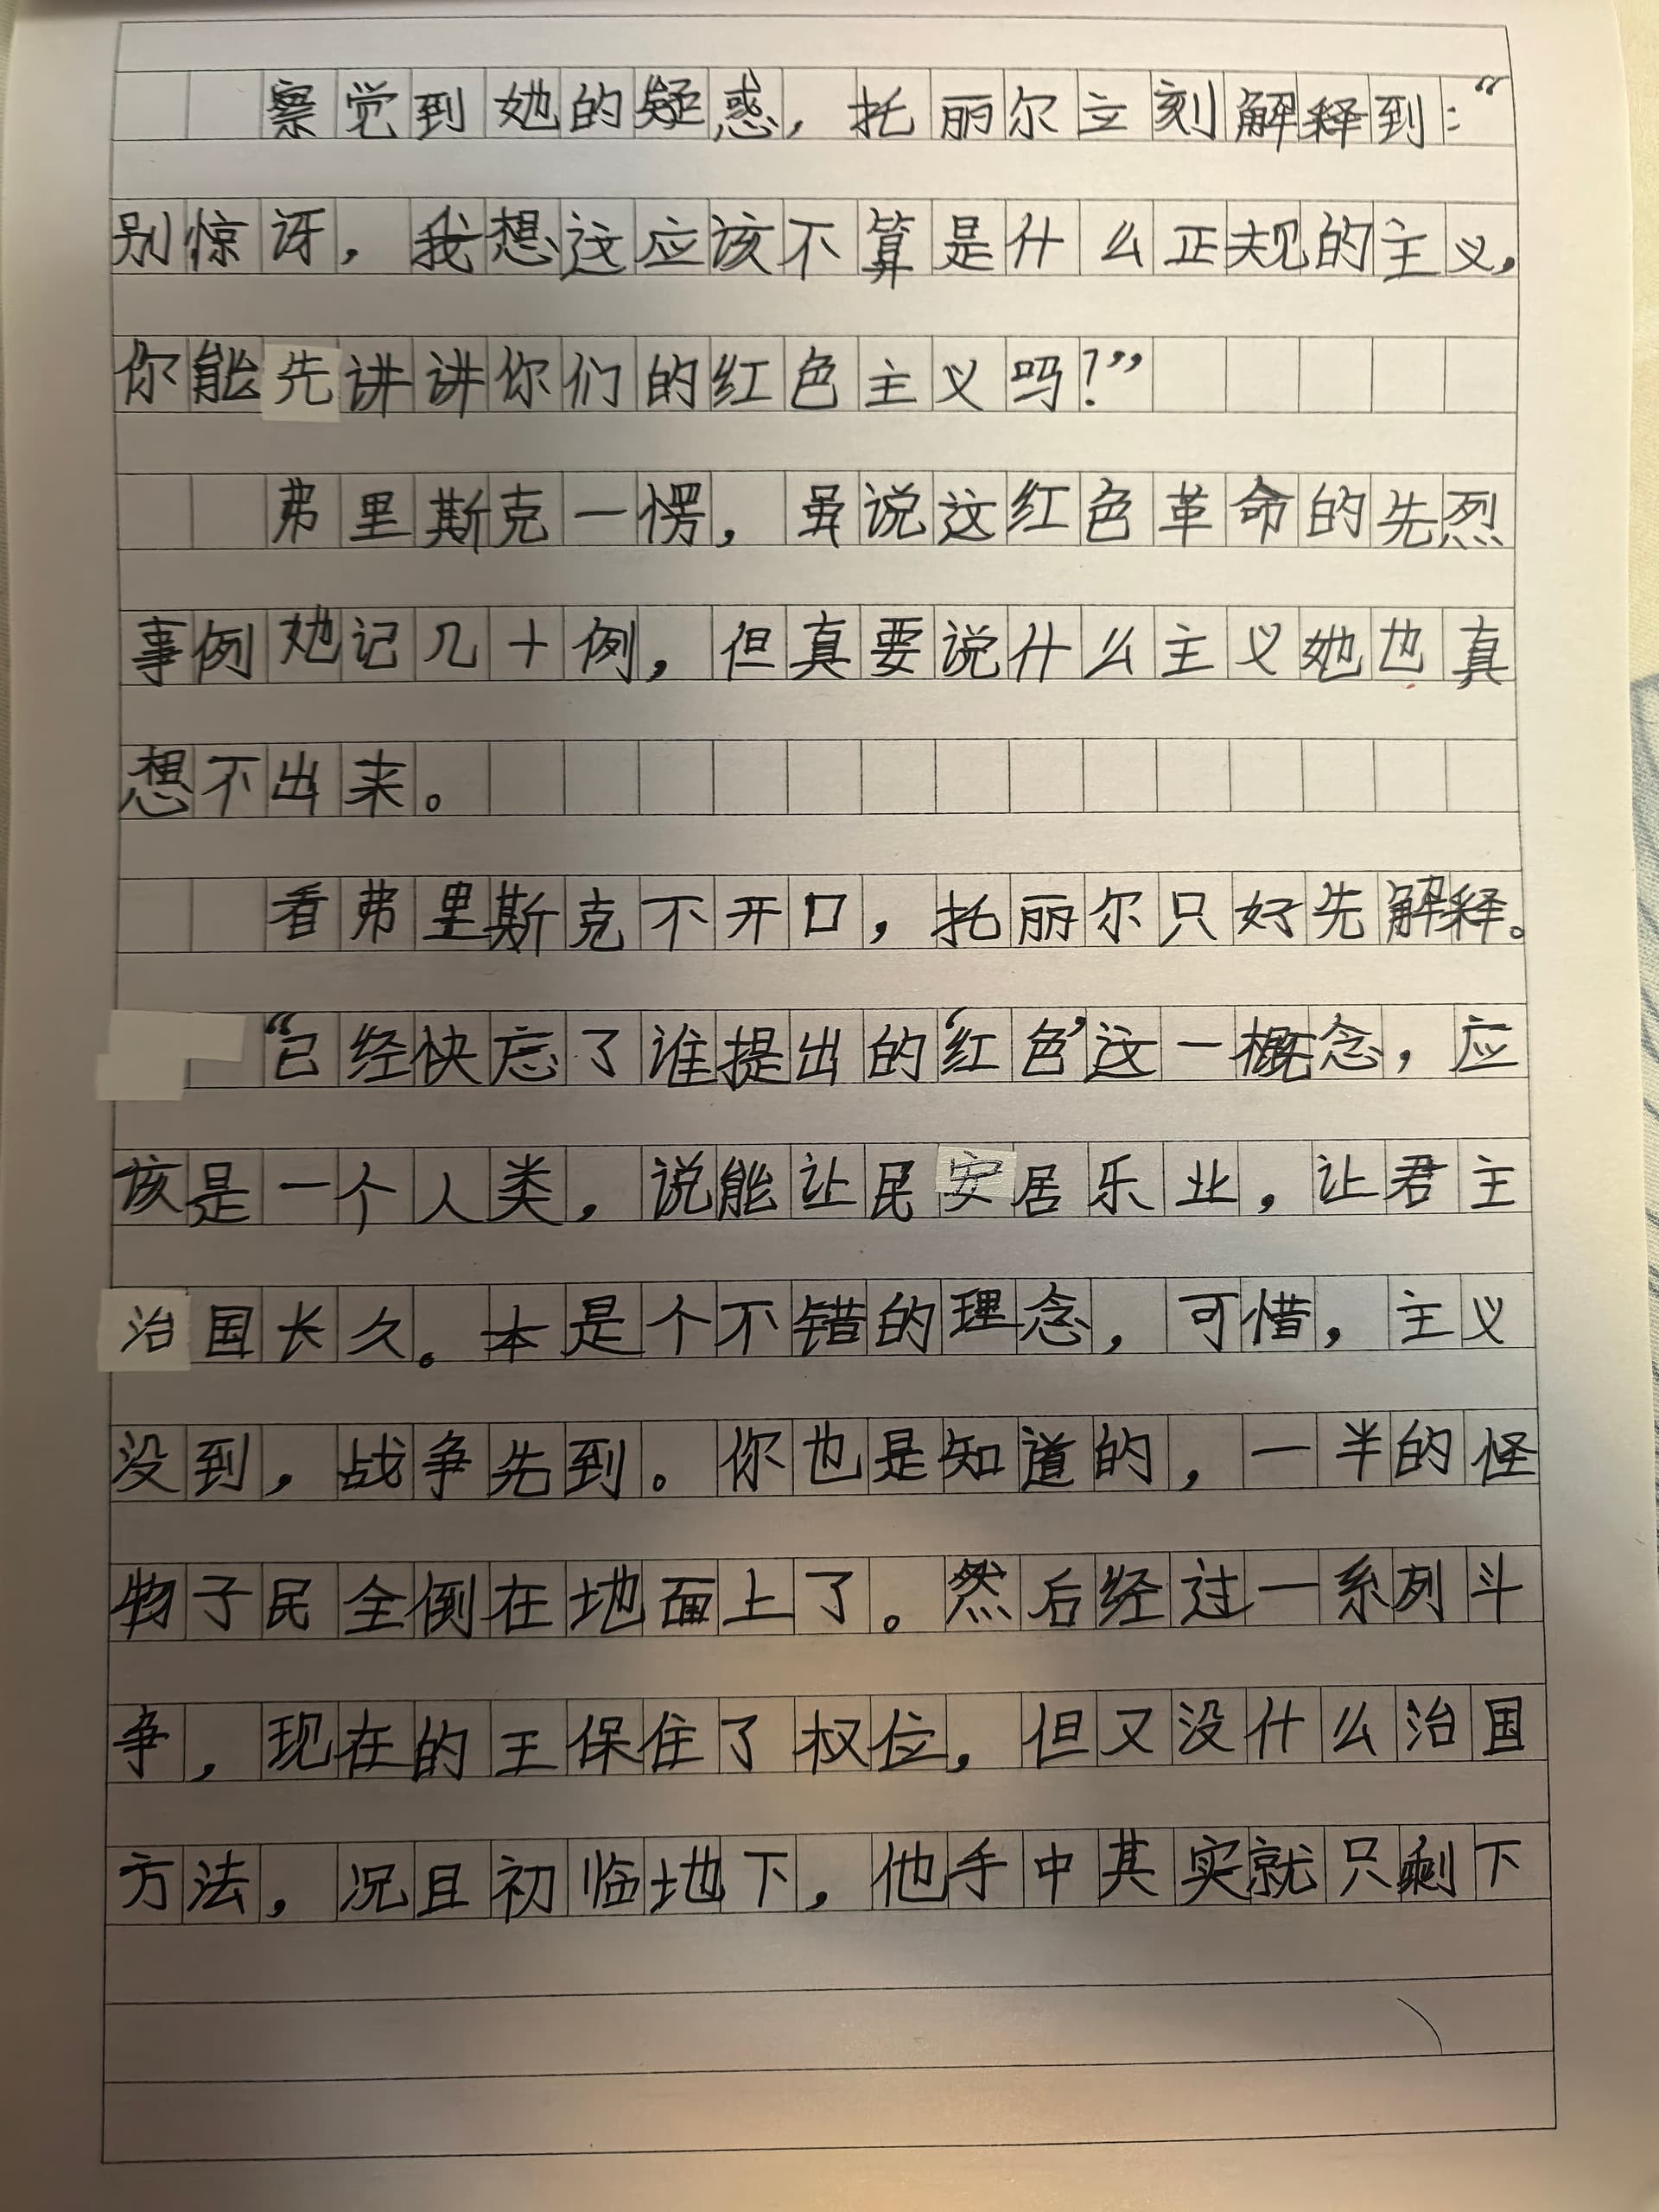 察觉到她的疑惑，托丽尔立刻解释到：“
别惊讶，我想这应该不算是什么正规的主义，
你能先讲讲你们的红色主义吗？”
弗里斯克一愣，虽说这红色革命的先烈
事例她记几十例，但真要说什么主义她也真
想不出来。
看弗里斯克不开口，托丽尔只好先解释。
“已经快忘了谁提出的‘红色’这一概念，应
该是一个人类，说能让民安居乐业，让君主
治国长久。本是个不错的理念，可惜，主义
没到，战争先到。你也是知道的，一半的怪
物子民全倒在地面上了。然后经过一系列斗
争，现在的王保住了权位，但又没什么治国
方法，况且初临地下，他手中其实就只剩下